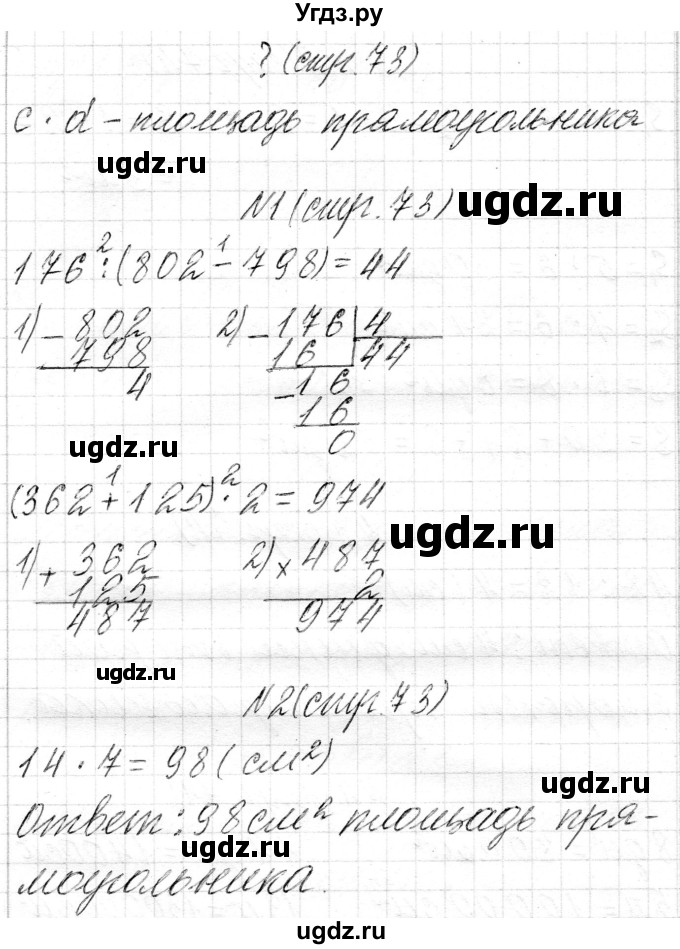 Угдз.ру
? (стр. 73)
c · d – площадь прямоугольника
ugdz.ru
№1 (стр. 73) ugdz.ru
176 :² (802 -¹ 798) = 44
1) - 802 2) - 176 | 4
798 16 | 44
4 - 16
16
ugdz.ru 0
(362 +¹ 125) ·² 2 = 974
ugdz.ru
1) + 362 2) × 487
125 2
487 974
ugdz.ru
№2 (стр. 73)
14 · 7 = 98 (см²)
ugdz.ru
Ответ: 98 см² площадь пря-
ugdz.ru
моугольника.
ugdz.ru
©Угдз.ру